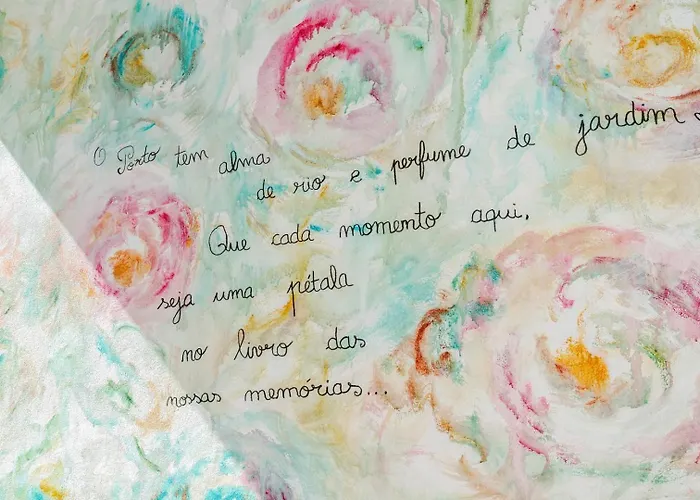 O Porto tem alma
de rio e perfume de jardim
Que cada momento aqui,
seja uma pétala
no livro das
nossas memórias...